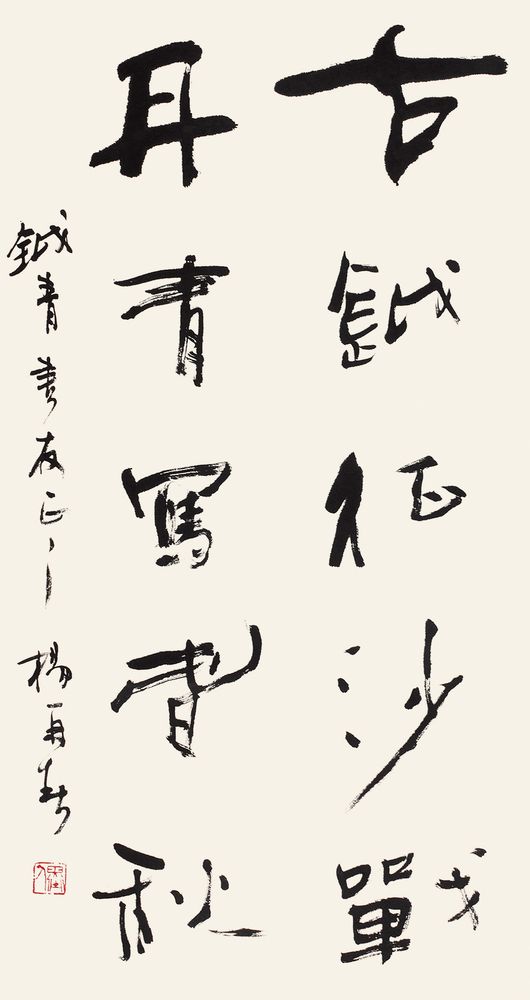 古鉞征沙戰
丹青寫春秋
鉞青書友正之 楊再春